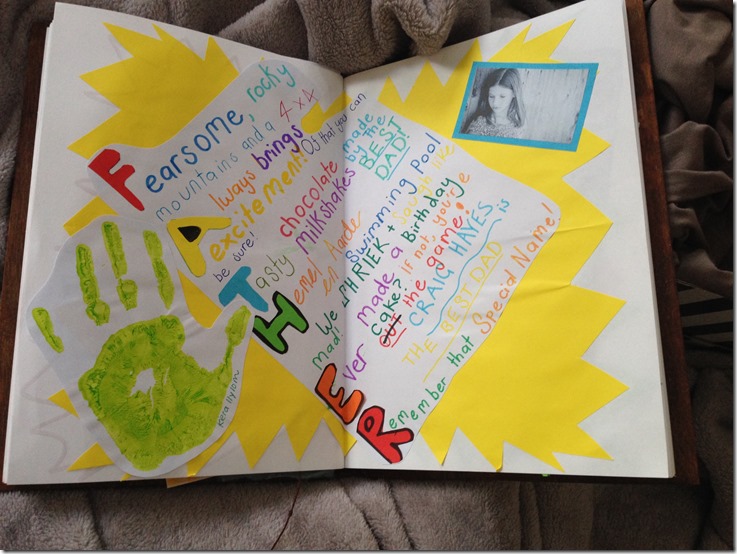 Fearsome, rocky
mountains and a 4x4
Always brings
excitement! Of that you can
be sure!
Tasty chocolate
milkshakes made
by the
BEST
DAD!
Hemel en Aarde Swimming pool
We SHRIEK + laugh like
mad!
Ever made a Birthday
Cake? If not, you're
OUT the game!
CRAIG HAYES is
THE BEST DAD
Remember that Special Name!